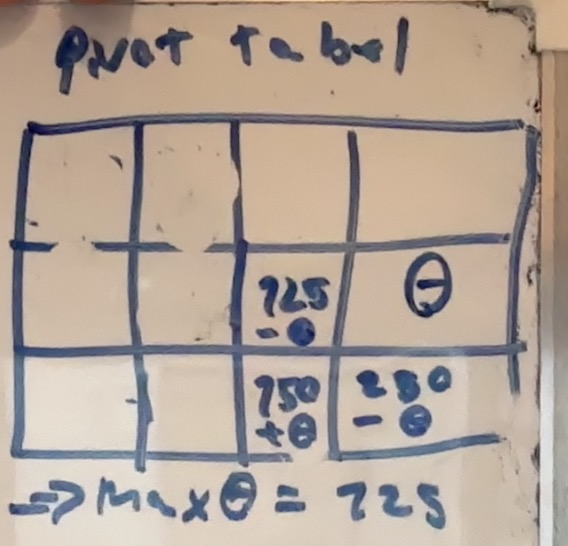 Pivot tabel
125 θ
- θ
150 250
+ θ - θ
=> Max θ = 125